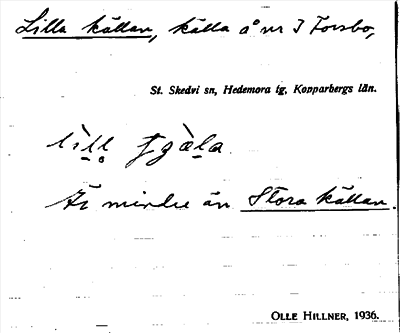 Lilla källan, källa å nr 3 Forsbo,
St. Skedvi sn, Hedemora tg, Kopparbergs län.
Är mindre än Stora källan.
OLLE HILLNER, 1936.